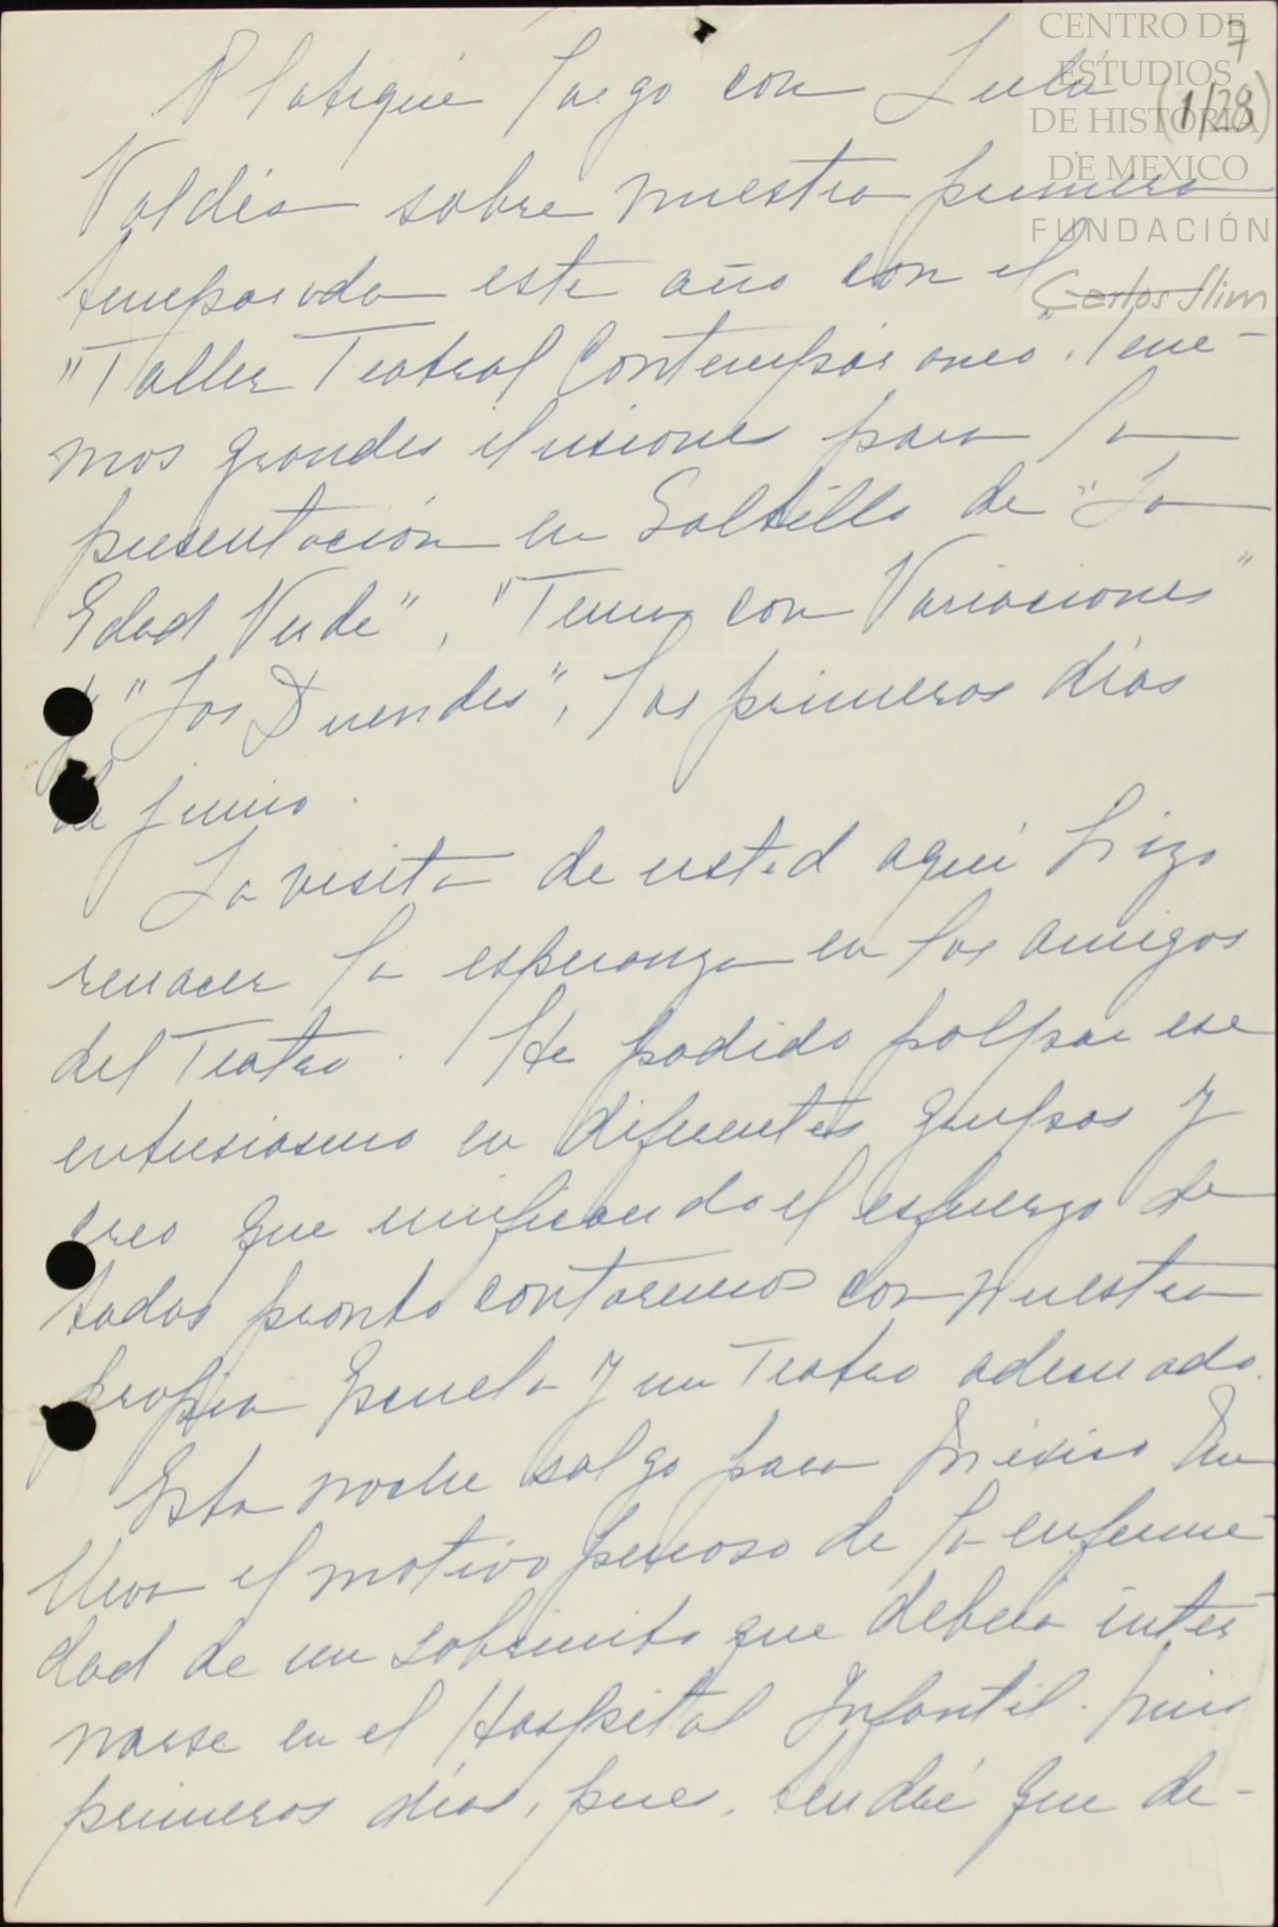 CENTRO DE
ESTUDIOS
DE HISTORIA
DE MEXICO
FUNDACIÓN
Carlos Slim
7
(1/28)
Platiqué largo con Lula
Valdés sobre nuestra primera
temporada este año con el
"Taller Teatral Contemporáneo". Tene-
mos grandes ilusiones para la
presentación en Saltillo de "La
Edad Verde", "Tema con Variaciones"
y "Los Duendes", los primeros días
de junio.
La visita de usted aquí hizo
renacer la esperanza en los amigos
del Teatro. He podido palpar ese
entusiasmo en diferentes grupos y
creo que unificando el esfuerzo de
todos pronto contaremos con nuestra
propia Escuela y un Teatro adecuado.
Esta noche salgo para México. Me
lleva el motivo penoso de la enferme-
dad de un sobrinito que deberá inter-
narse en el Hospital Infantil. Mis
primeros días, pues, tendré que de-